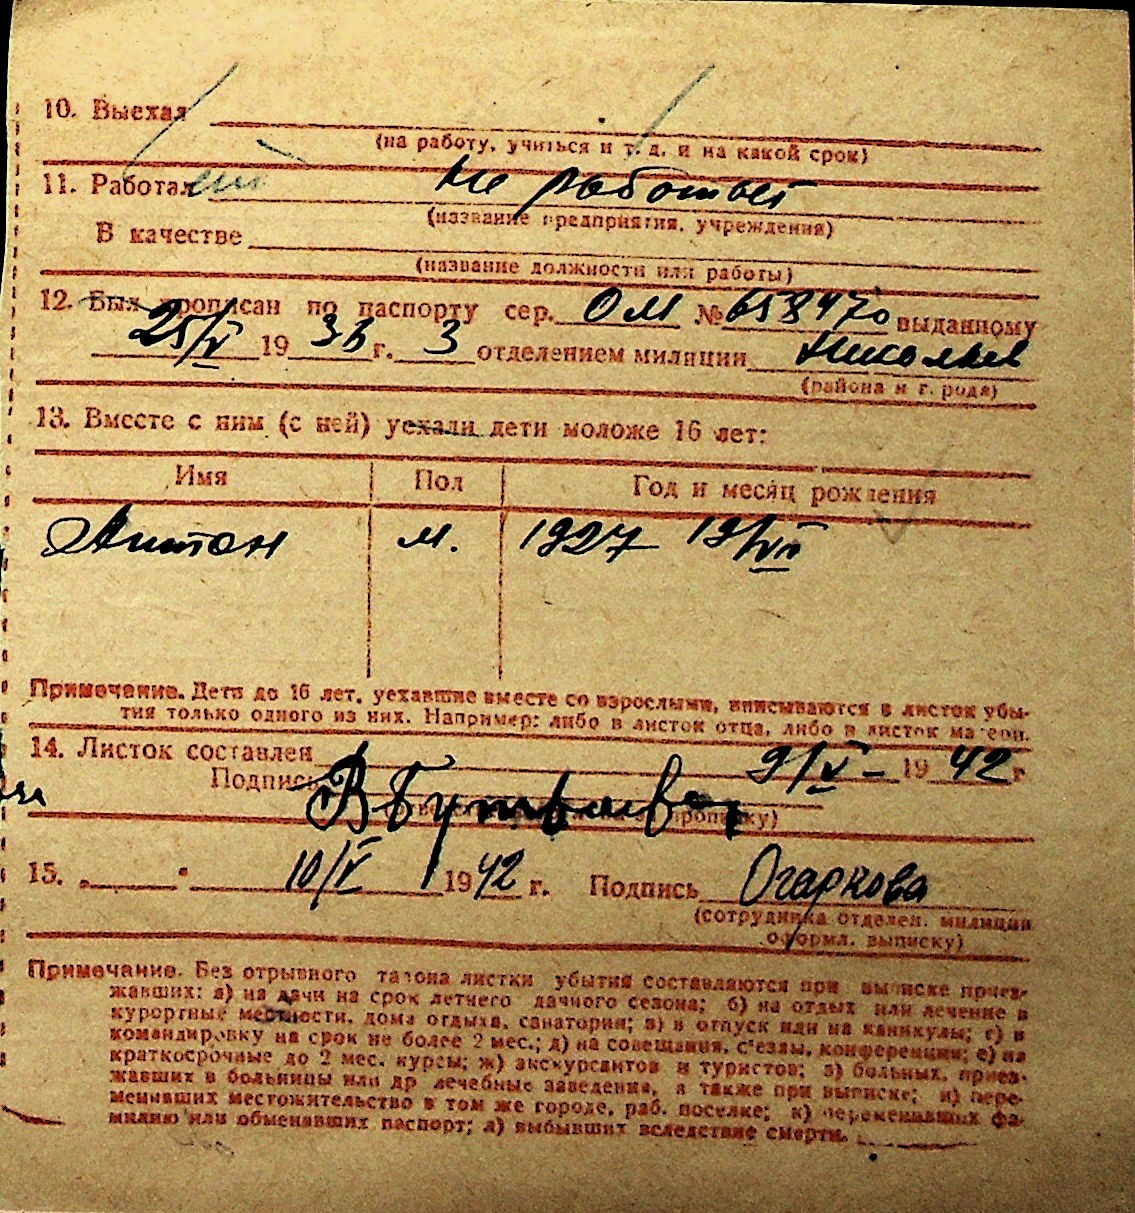 10. Выехал
(на работу, учиться и т. д. и на какой срок)
11. Работал не работает
(название предприятия, учреждения)
В качестве
(название должности или работы)
12. Был прописан по паспорту сер. ОМ № 658470 выданному
25/V 1936 г. 3 отделением милиции Николаев
(района и г. рода)
13. Вместе с ним (с ней) уехали дети моложе 16 лет:
Имя Пол Год и месяц рождения
Антон м. 1927 19/VII
Примечание. Дети до 16 лет, уехавшие вместе со взрослыми, вписываются в листок убы-
тия только одного из них. Например: либо в листок отца, либо в листок матери.
14. Листок составлен 9/V - 1942 г
Подпись
прописку)
15. 10/V 1942 г. Подпись Огаркова
(сотрудника отделен. милиции
оформл. выписку)
Примечание. Без отрывного талона листки убытия составляются при выписке приез-
жавших: а) на дачи на срок летнего дачного сезона; б) на отдых или лечение в
курортные местности, дома отдыха, санатории; в) в отпуск или на каникулы; г) в
командировку на срок не более 2 мес.; д) на совещания, с'езды, конференции; е) на
краткосрочные до 2 мес. курсы; ж) экскурсантов и туристов; з) больных, приез-
жавших в больницы или др лечебные заведения, а также при выписке; и) пере-
менивших местожительство в том же городе, раб. поселке; к) переменивших фа-
милию или обменявших паспорт; л) выбывших вследствие смерти.